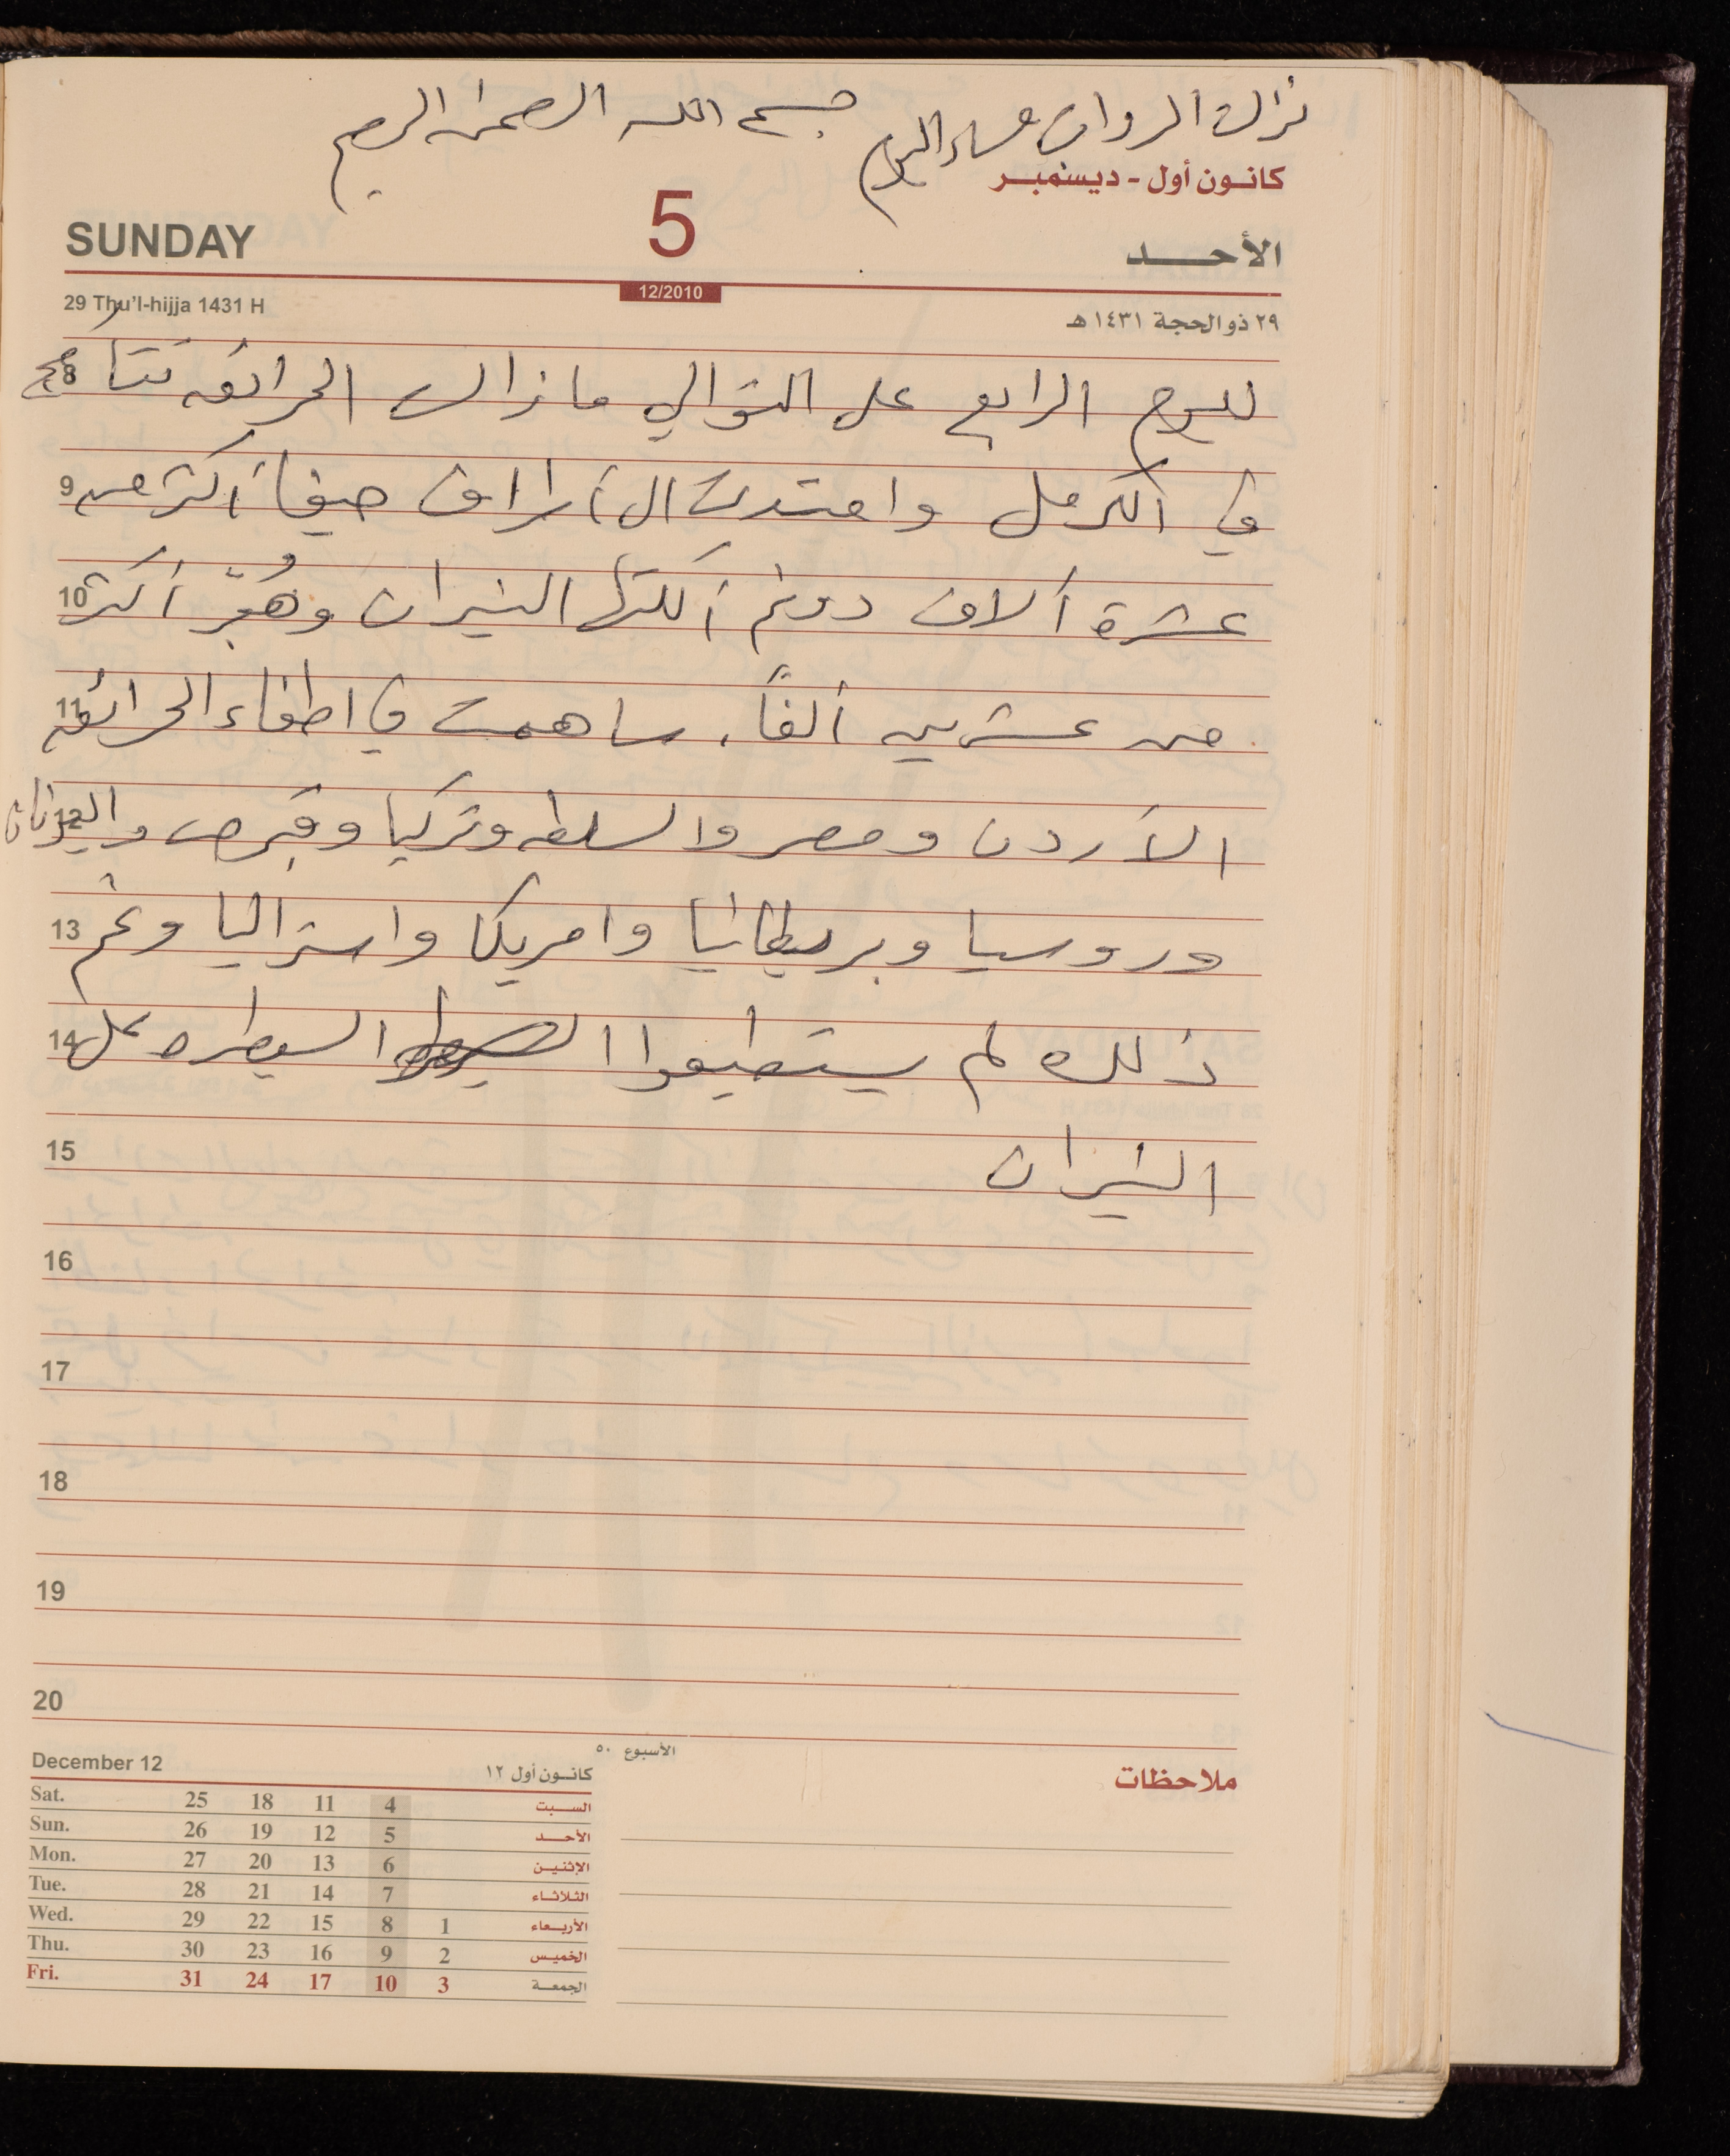 نزلت الروان مساء اليوم بسم الله الرحمن الرحيم
كانون أول - ديسمبر
SUNDAY 5 الأحد
29 Thu'l-hijja 1431 H 12/2010 ٢٩ ذو الحجة ١٤٣١ هـ
لليوم الرابع على التوالي مازالت الحرائق تتأجج 8
في الكرمل وامتدت الى أطراف حيفا أكثر من 9
عشرة آلاف دونم أكلتها النيران وهُجّر أكثر 10
من عشرين ألفاً. ساهمت في اطفاء الحرائق 11
الأردن ومصر والسلطه وتركيا وقبرص واليونان 12
وروسيا وبريطانيا وامريكا واستراليا ورغم 13
ذلك لم يستطيعوا السيطره على 14
النيران
15
16
17
18
19
20
الأسبوع ٥٠
ملاحظات
December 12 كانون أول ١٢
Sat. 25 18 11 4 السبت
Sun. 26 19 12 5 الأحد
Mon. 27 20 13 6 الإثنين
Tue. 28 21 14 7 الثلاثاء
Wed. 29 22 15 8 1 الأربعاء
Thu. 30 23 16 9 2 الخميس
Fri. 31 24 17 10 3 الجمعة